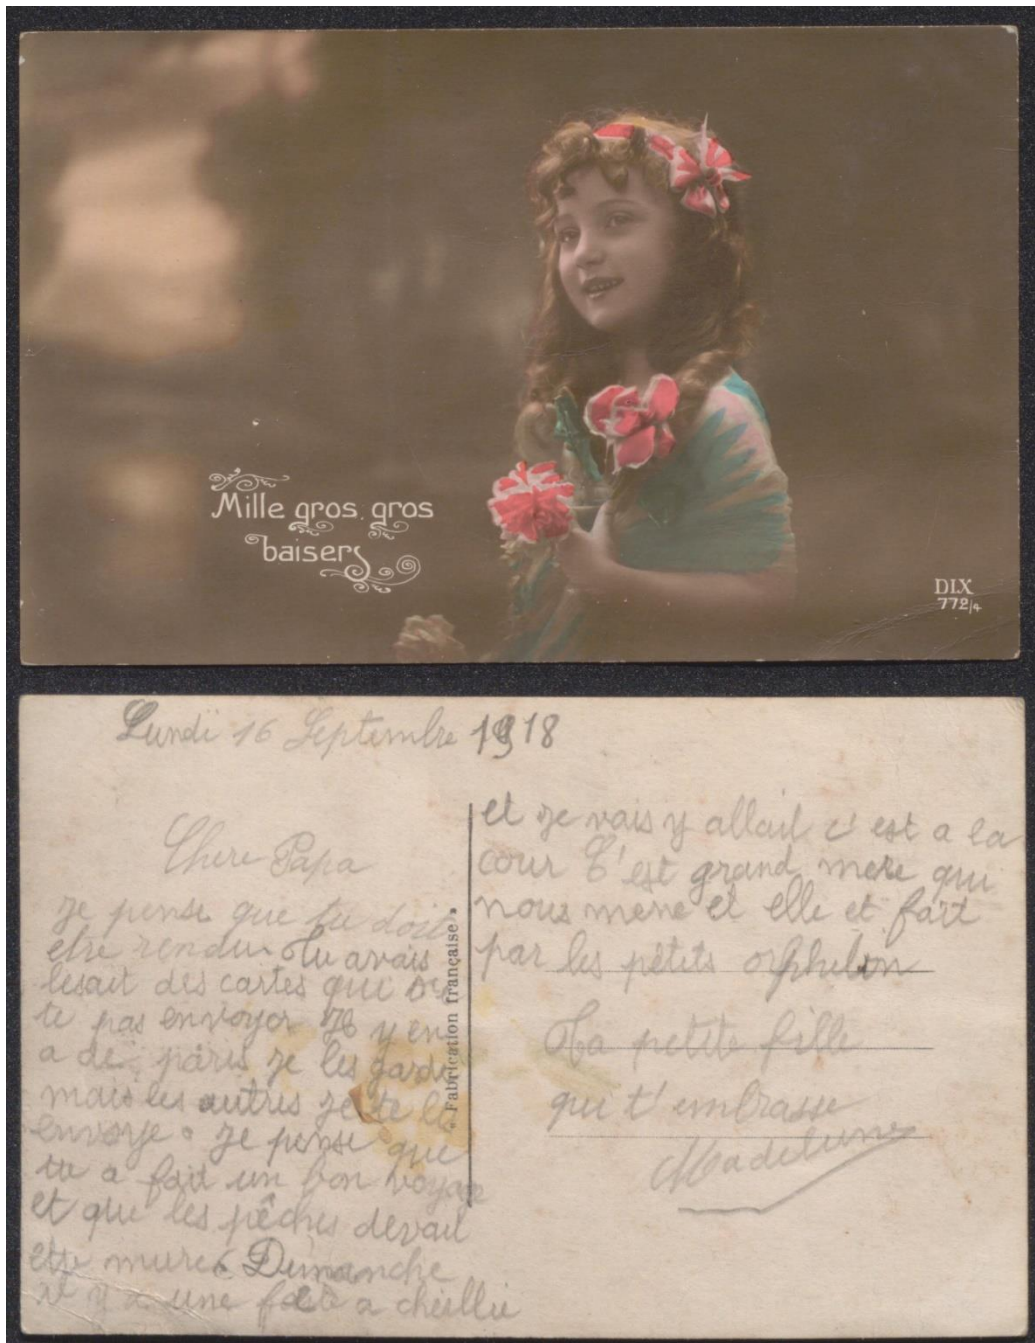 Mille gros, gros
baisers
DIX
772/4
Lundi 16 Septembre 1918
Chere Papa
je pense que tu doit
etre rendu Tu avais
lesait des cartes que
te pas envoyor Il y en
a de paris je les garde
mais les autres je te les
envoye. je pense que
tu a fait un bon voyage
et que les pêches devail
etre mures Dimanche
il y a une fete a
Fabrication française.
et je vais y allait c'est a la
cour C'est grand mere qui
nous mene et elle et fait
par les petits orphelin
Ta petite fille
qui t'embrasse
Madeleine